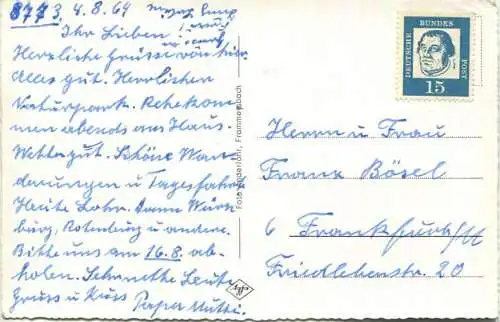 8773, 4.8.64
Ihr Lieben!
Herzliche Grüsse von hier.
Alles gut. Herrlicher
Naturpark. Rehe kom-
men abends ans Haus.
Wetter gut. Schöne Wan-
derungen u Tagesfahrt.
Heute Lohr. Dann Würz-
burg, Rotenburg u andere.
Bitte uns am 16.8. ab-
holen. Sehr nette Leute
Gruss u Kuss Papa Mutti.
Foto Niederlohr, Frammersbach
Agfa
DEUTSCHE BUNDESPOST
15
Herrn u Frau
Franz Bösel
6 Frankfurt/M
Friedlebenstr. 20